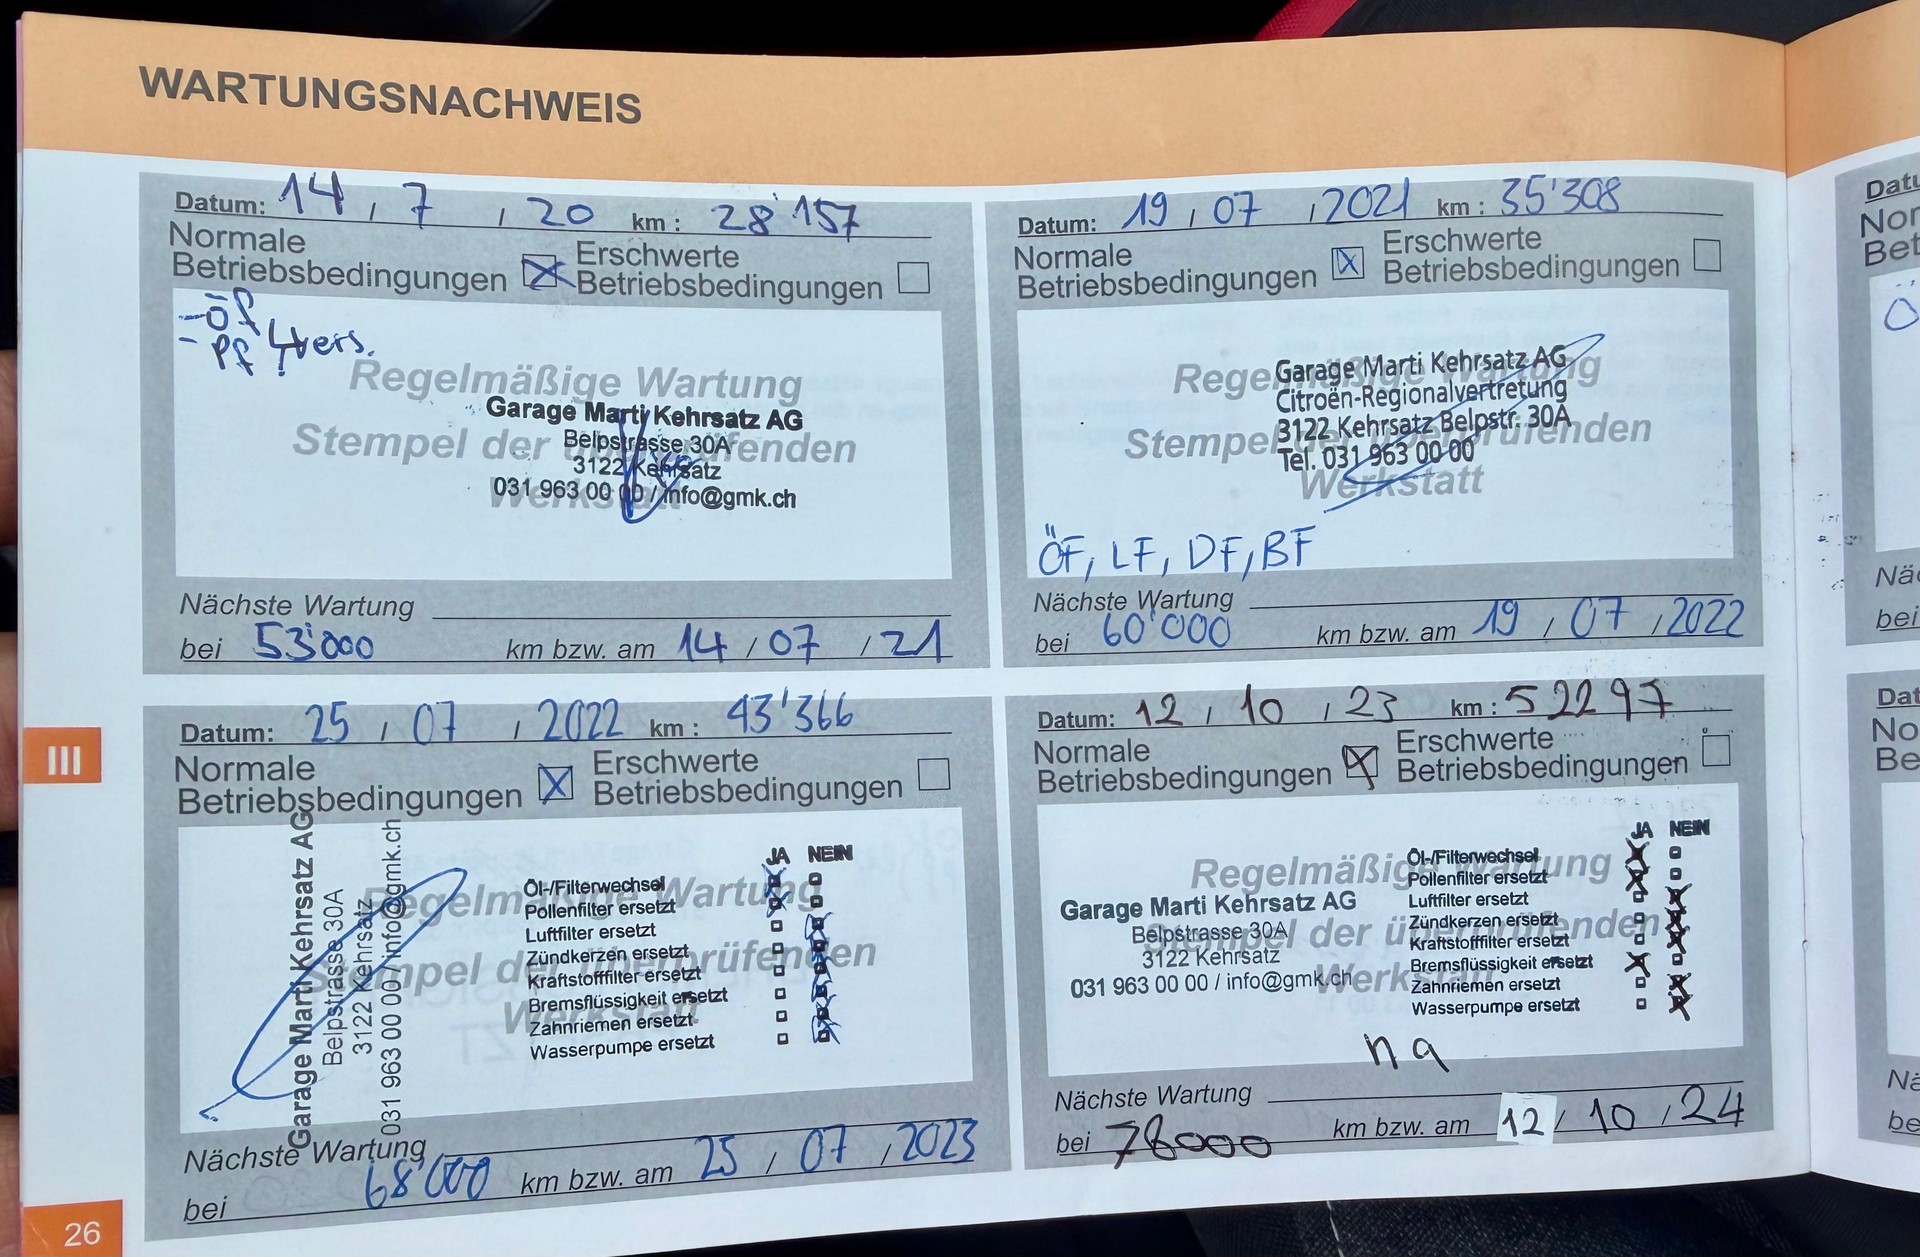 WARTUNGSNACHWEIS
Datum: 14 / 7 / 20 km : 28'157
Normale Betriebsbedingungen Erschwerte Betriebsbedingungen
- öf
- Pf vers.
Regelmäßige Wartung
Stempel der überprüfenden
Werkstatt
Garage Marti Kehrsatz AG
Belpstrasse 30A
3122 Kehrsatz
031 963 00 00 / info@gmk.ch
Nächste Wartung
bei 53'000 km bzw. am 14 / 07 / 21
Datum: 19 / 07 / 2021 km : 35'308
Normale Betriebsbedingungen Erschwerte Betriebsbedingungen
Regelmäßige Wartung
Stempel der überprüfenden
Werkstatt
Garage Marti Kehrsatz AG
Citroën-Regionalvertretung
3122 Kehrsatz Belpstr. 30A
Tel. 031 963 00 00
ÖF, LF, DF, BF
Nächste Wartung
bei 60'000 km bzw. am 19 / 07 / 2022
III
Datum: 25 / 07 / 2022 km : 43'366
Normale Betriebsbedingungen Erschwerte Betriebsbedingungen
Regelmäßige Wartung
Stempel der überprüfenden
Werkstatt
Garage Marti Kehrsatz AG
Belpstrasse 30A
3122 Kehrsatz
031 963 00 00 / info@gmk.ch
JA NEIN
Öl-/Filterwechsel
Pollenfilter ersetzt
Luftfilter ersetzt
Zündkerzen ersetzt
Kraftstofffilter ersetzt
Bremsflüssigkeit ersetzt
Zahnriemen ersetzt
Wasserpumpe ersetzt
Nächste Wartung
bei 68'000 km bzw. am 25 / 07 / 2023
Datum: 12 / 10 / 23 km : 52297
Normale Betriebsbedingungen Erschwerte Betriebsbedingungen
Regelmäßige Wartung
Stempel der überprüfenden
Werkstatt
Garage Marti Kehrsatz AG
Belpstrasse 30A
3122 Kehrsatz
031 963 00 00 / info@gmk.ch
JA NEIN
Öl-/Filterwechsel
Pollenfilter ersetzt
Luftfilter ersetzt
Zündkerzen ersetzt
Kraftstofffilter ersetzt
Bremsflüssigkeit ersetzt
Zahnriemen ersetzt
Wasserpumpe ersetzt
Nächste Wartung
bei 78000 km bzw. am 12 / 10 / 24
26